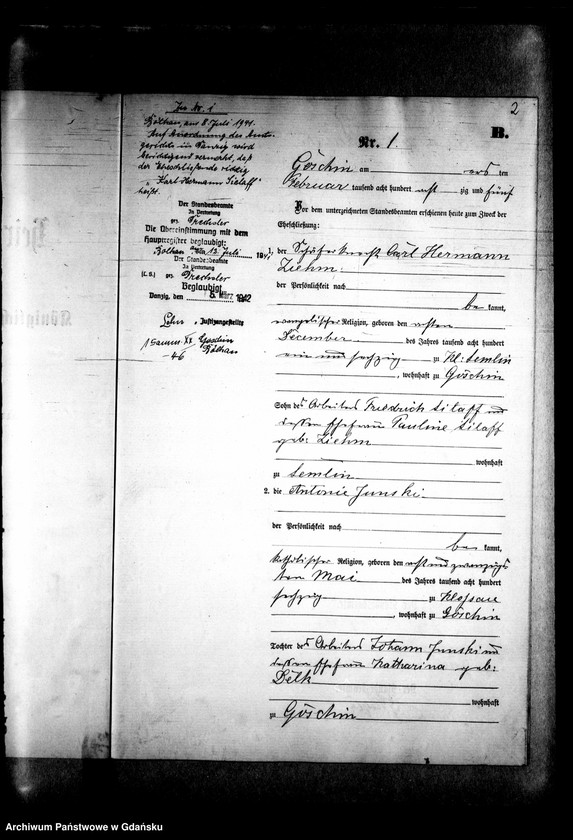 2
B.
Nr. 1.
Zu Nr. 1
Rölhau, am 8. Juli 1941.
Auf Anordnung des Amts-
gerichts in Danzig wird
berichtigend vermerkt, daß
der Eheschließende richtig
„Karl Hermann Sielaff"
heißt.
Der Standesbeamte
In Vertretung
gez. Drechsler
Die Übereinstimmung mit dem
Hauptregister beglaubigt:
den 12. Juli 1941
Der Standesbeamte
In Vertretung
(L. S.) gez. Drechsler
Beglaubigt
Danzig, den 5. März 1942
Justizangestellte
Göschin am ten
Februar tausend acht hundert acht zig und fünf
Vor dem unterzeichneten Standesbeamten erschienen heute zum Zweck der
Eheschließung:
1. der Schäferknecht Carl Hermann
Ziehm
der Persönlichkeit nach
be kannt,
evangelischer Religion, geboren den ersten
December des Jahres tausend acht hundert
ein und sechzig zu Kl: Semlin
, wohnhaft zu Göschin
Sohn des Arbeiters Friedrich Silaff und
dessen Ehefrau Pauline Silaff
geb: Ziehm
wohnhaft
zu Semlin
2. die Antonie Junski
der Persönlichkeit nach
be kannt,
katholischer Religion, geboren den acht und zwanzigs
ten Mai des Jahres tausend acht hundert
sechzig zu Klossau
, wohnhaft zu Göschin
Tochter des Arbeiters Johann Junski und
dessen Ehefrau Katharina geb:
Belk
wohnhaft
zu Göschin
Archiwum Państwowe w Gdańsku